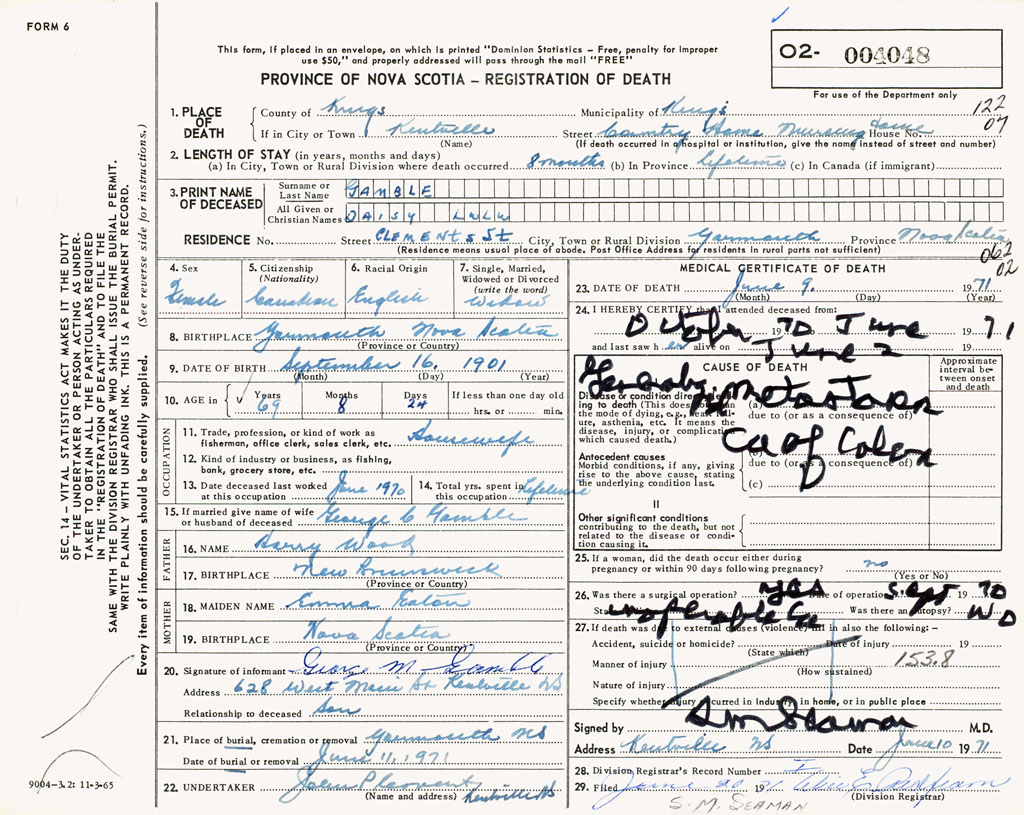 FORM 6
This form, if placed in an envelope, on which is printed "Dominion Statistics – Free, penalty for improper
use $50," and properly addressed will pass through the mail "FREE"
PROVINCE OF NOVA SCOTIA – REGISTRATION OF DEATH
02- 004048
For use of the Department only
122
07
1. PLACE OF DEATH
County of Kings Municipality of Kings
If in City or Town Kentville Street Country Home Nursing Home House No.
(Name) (If death occurred in a hospital or institution, give the name instead of street and number)
2. LENGTH OF STAY (in years, months and days)
(a) In City, Town or Rural Division where death occurred 8 months (b) In Province Lifetime (c) In Canada (if immigrant)
3. PRINT NAME OF DECEASED
Surname or Last Name GAMBLE
All Given or Christian Names DAISY LULU
RESIDENCE No. Street CLEMENTS St City, Town or Rural Division Yarmouth Province Nova Scotia
(Residence means usual place of abode. Post Office Address for residents in rural parts not sufficient)
062
02
4. Sex Female
5. Citizenship (Nationality) Canadian
6. Racial Origin English
7. Single, Married, Widowed or Divorced (write the word) Widow
8. BIRTHPLACE Yarmouth Nova Scotia
(Province or Country)
9. DATE OF BIRTH September 16, 1901
(Month) (Day) (Year)
10. AGE in Years 69 Months 8 Days 24 If less than one day old hrs. or min.
OCCUPATION
11. Trade, profession, or kind of work as fisherman, office clerk, sales clerk, etc. Housewife
12. Kind of industry or business, as fishing, bank, grocery store, etc.
13. Date deceased last worked at this occupation June 1970
14. Total yrs. spent in this occupation Lifetime
15. If married give name of wife or husband of deceased George C Gamble
FATHER
16. NAME Harry Wood
17. BIRTHPLACE New Brunswick
(Province or Country)
MOTHER
18. MAIDEN NAME Emma Eaton
19. BIRTHPLACE Nova Scotia
(Province or Country)
20. Signature of informant George M. Gamble
Address 628 West Main St Kentville NS
Relationship to deceased Son
21. Place of burial, cremation or removal Yarmouth NS
Date of burial or removal June 11, 1971
22. UNDERTAKER Kentville NS
(Name and address)
MEDICAL CERTIFICATE OF DEATH
23. DATE OF DEATH June 9, 1971
(Month) (Day) (Year)
24. I HEREBY CERTIFY that I attended deceased from:
October 1970 June 1971
and last saw her alive on June 2 19
CAUSE OF DEATH
Approximate interval between onset and death
I
Disease or condition directly leading to death (This does not mean the mode of dying, e.g., heart failure, asthenia, etc. It means the disease, injury, or complication which caused death.)
(a)
due to (or as a consequence of)
Ca of Colon
Antecedent causes
Morbid conditions, if any, giving rise to the above cause, stating the underlying condition last.
due to (or as a consequence of)
(c)
II
Other significant conditions contributing to the death, but not related to the disease or condition causing it.
25. If a woman, did the death occur either during pregnancy or within 90 days following pregnancy? no
(Yes or No)
26. Was there a surgical operation? yes Date of operation Sept 1970
inoperable Ca Was there an autopsy? No
27. If death was due to external causes (violence) fill in also the following: –
Accident, suicide or homicide? Date of injury 19
(State which)
Manner of injury 153.8
(How sustained)
Nature of injury
Specify whether injury occurred in industry, in home, or in public place
Signed by S M Seaman M.D.
Address Kentville NS Date June 10 1971
28. Division Registrar's Record Number
29. Filed June 19
(Division Registrar)
S. M. SEAMAN
9004-3.2: 11-3-65
SEC. 14 – VITAL STATISTICS ACT MAKES IT THE DUTY
OF THE UNDERTAKER OR PERSON ACTING AS UNDER-
TAKER TO OBTAIN ALL THE PARTICULARS REQUIRED
IN THE "REGISTRATION OF DEATH" AND TO FILE THE
SAME WITH THE DIVISION REGISTRAR WHO SHALL ISSUE THE BURIAL PERMIT.
WRITE PLAINLY WITH UNFADING INK. THIS IS A PERMANENT RECORD.
Every item of information should be carefully supplied. (See reverse side for instructions.)